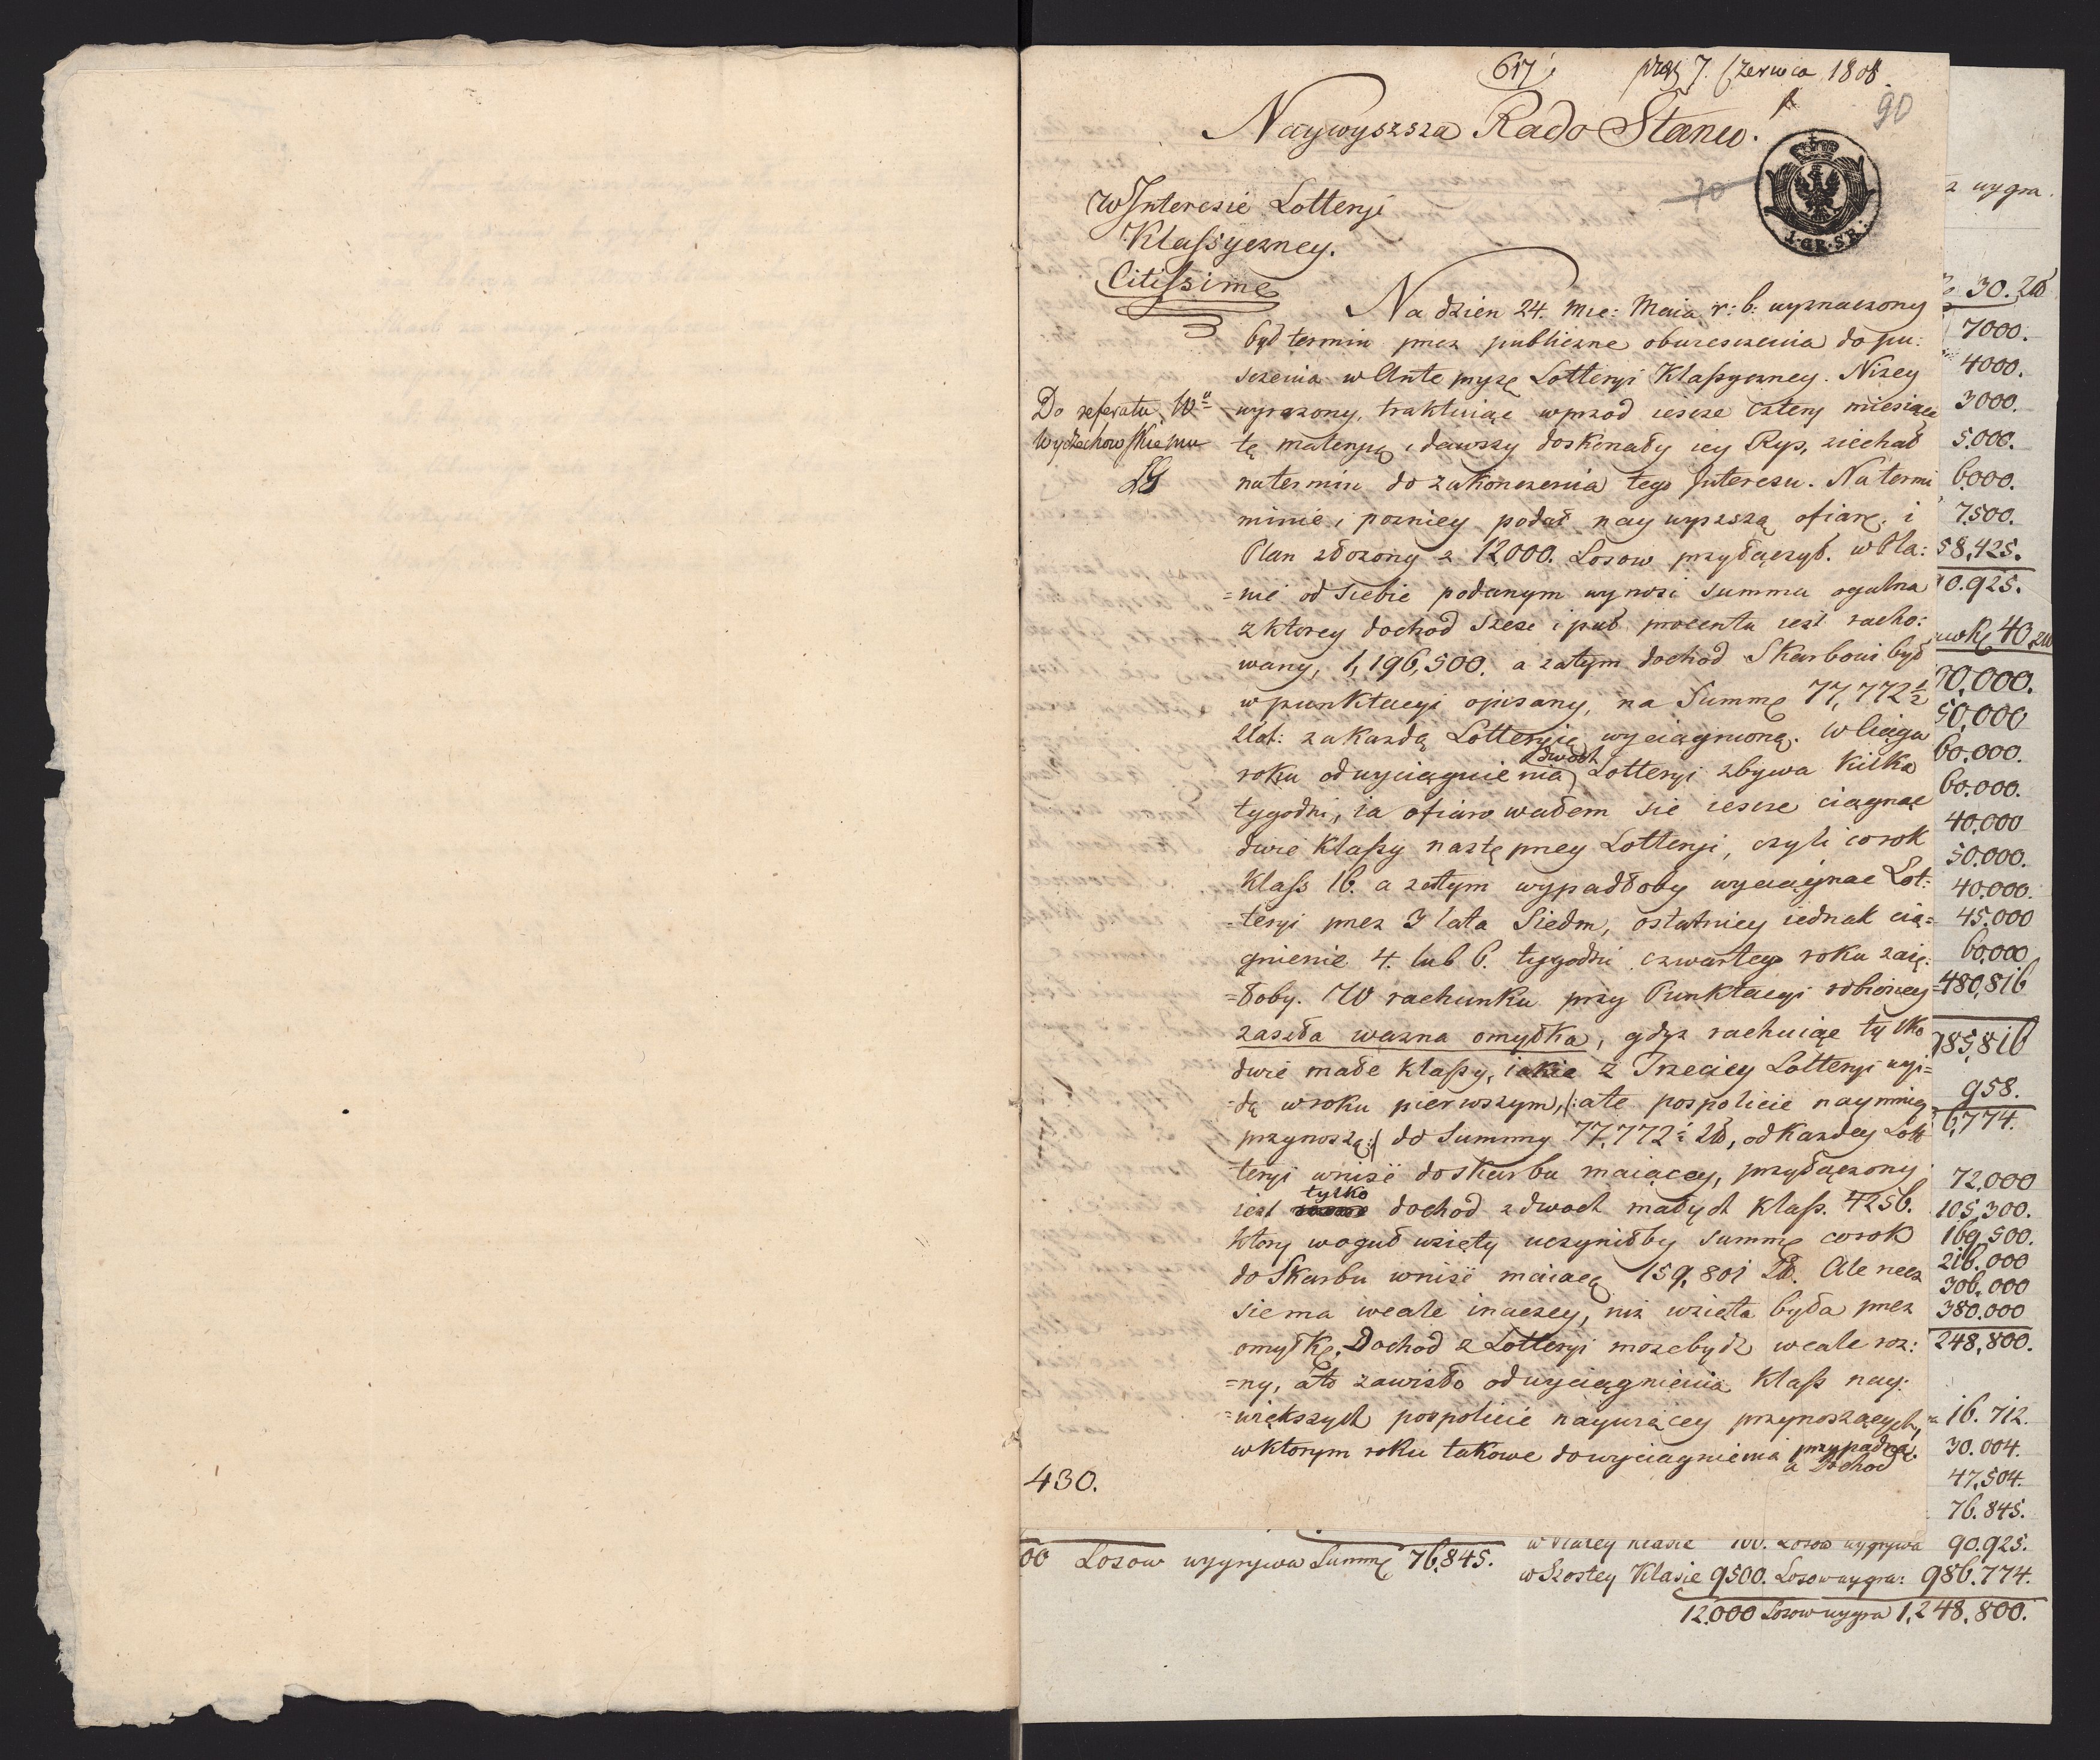 617
7. Czerwca 1808.
90
Naywyzsza Rado Stanu.
70
1·GR·SR·
W Interesie Lotteryi
Klassyczney.
Citissime
Do referatu Wu
Wyczechowskiemu
Na dzien 24. Mce: Maia r: b: wyznaczony
był termin przez publiczne obwieszczenia do pu:
szczenia w Antepryzę Lotteryi Klassyczney. Nizey
wyrazony, traktuiąc wprzod ieszcze cztery miesiące
tę materyią i dawszy doskonały iey Rys, ziechał
na termin do zakonczenia tego Interesu. Na termi
minie i pozniey podał naywyzszą ofiarę, i
Plan złozony z 12,000. Losow przyłączył. w Pla:
=nie od siebie podanym wynosi summa ogulna
z ktorey dochod szesc i puł procentu iest racho:
wany, 1,196,500. a zatym dochod Skarbowi był
w punktacyi opisany, na Summę 77,772½
Złot: za kazdą Lotteryię wyciągnioną. W Ciągu
roku od wyciągnienia dwoch Lotteryi zbywa kilka
tygodni, ia ofiarowałem się ieszcze ciągnąc
dwie klassy nastęпney Lotteryi, czyli co rok
Klass 16. a zatym wypadłoby wyciągnac Lot:
=teryi przez 3 lata Siedm, ostatniey iednak cią=
gnienie 4. lub 6. tygodni czwartego roku zaię:
=łoby. W rachunku przy Punktacyi robioney
zaszła wazna omyłka, gdyz rachuiąc tylko
dwie małe klassy, iakie z Trzeciey Lotteryi wyi=
=dą w roku pierwszym, (:ale pospolicie naymniey
przynoszą:) do Summy 77,772½ Zł, od kazdey Lot
teryi wniść do skarbu maiącey, przyłączony
iest tylko dochod z dwoch małych klass. 4256.
ktory w oguł wzięty uczyniłby summę co rok
do Skarbu wniść maiącą 159,801 Zł. Ale rzecz
się ma wcale inaczey, niz wzięta była przez
omyłkę. Dochod z Lotteryi moze bydz wcale roz:
=ny, a to zawisło od wyciągnienia klass nay:
=większych pospolicie naywięcey przynoszących,
w ktorym roku takowe do wyciągnienia przypadną.
a Dochod
430.
wygra.
30. Zł
7000.
4000.
3000.
5.000.
6000.
7.500.
58,425.
90.925.
40 Zł
00,000.
50,000
60.000.
60.000.
40,000
50.000.
40.000.
45.000
60,000
480,816
985,816
958.
6,774.
72,000
105,300.
169,500.
216.000
306.000
380.000
248,800.
16. 712.
30. 004.
47,504.
76.845.
00 Losow wygrywa Summę 76,845.
Klasie Losow wygrywa 90.925.
w Szostey Klasie 9500. Losow wygra: 986.774.
12.000 Losow wygra 1,248,800.